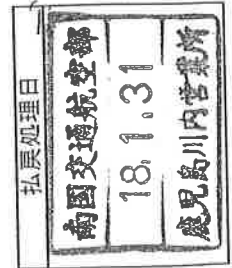 払戻処理日
南国交通航空部
18.1.31
鹿児島川内営業所